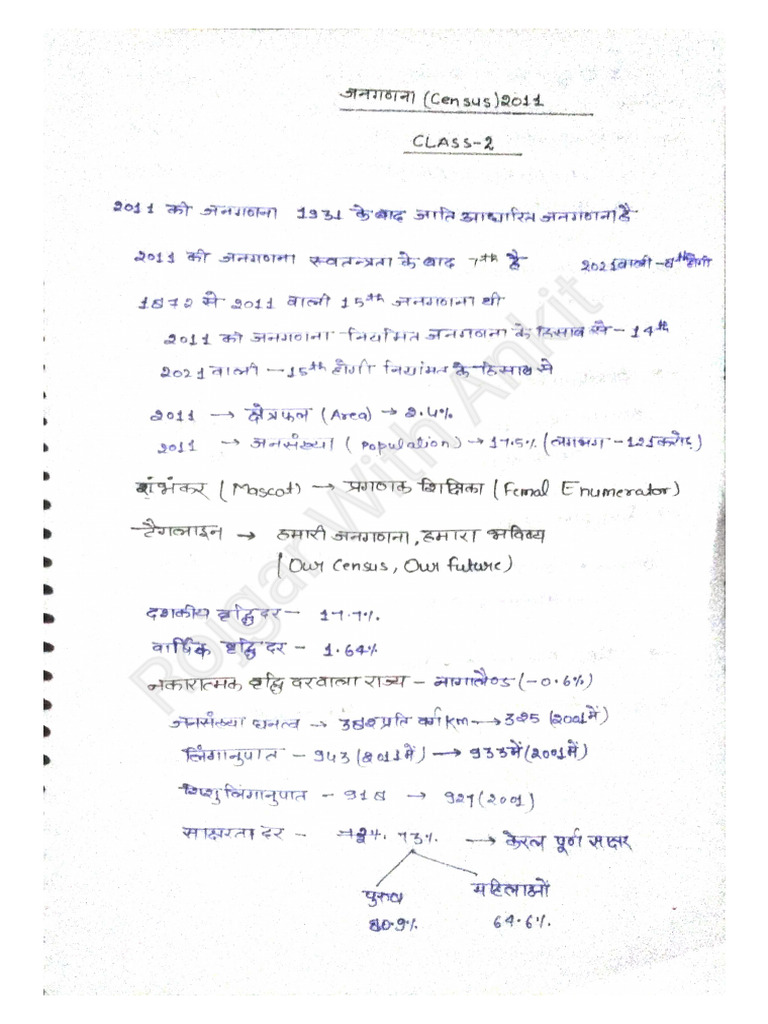 जनगणना (Census) 2011
CLASS-2
2011 की जनगणना 1931 के बाद जाति आधारित जनगणना है
2011 की जनगणना स्वतन्त्रता के बाद 7th है 2021 वाली - 8th होगी
1872 से 2011 वाली 15th जनगणना थी
2011 की जनगणना नियमित जनगणना के हिसाब से - 14th
2021 वाली - 15th होगी नियमित के हिसाब से
2011 → क्षेत्रफल (Area) → 2.4%
2011 → जनसंख्या (Population) → 17.5% (लगभग - 121 करोड़)
शुंभंकर (Mascot) → प्रगणक शिक्षिका (Femal Enumerator)
टैगलाइन → हमारी जनगणना, हमारा भविष्य
(Our Census, Our Future)
दशकीय वृद्धि दर - 17.7%
वार्षिक वृद्धि दर - 1.64%
नकारात्मक वृद्धि दर वाला राज्य - नागालैण्ड (-0.6%)
जनसंख्या घनत्व → 382 प्रति वर्ग Km → 325 (2001 में)
लिंगानुपात - 943 (2011 में) → 933 में (2001 में)
शिशु लिंगानुपात - 918 → 927 (2001)
साक्षरता दर - 73% → केरल पूर्ण साक्षर
पुरुष महिलाओं
80.9% 64.6%
Rojgar With Ankit